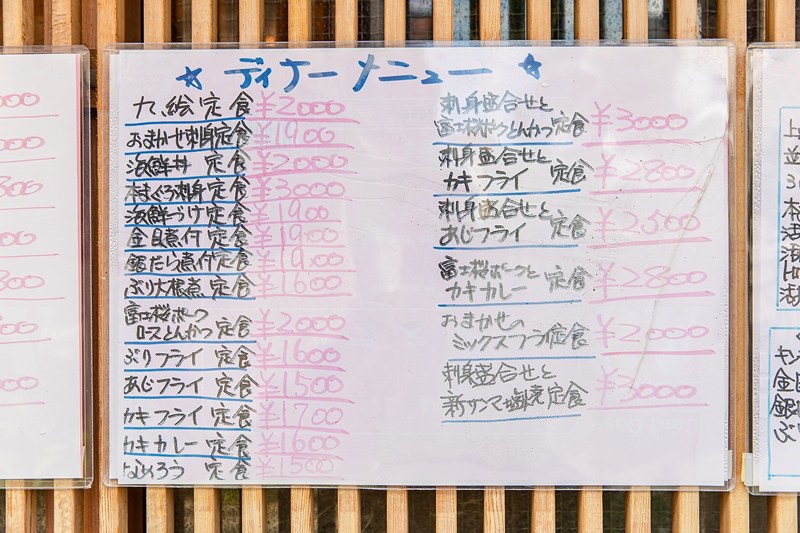 ☆ ディナーメニュー ☆
九絵定食 ¥2000
おまかせ刺身定食 ¥1900
海鮮丼 定食 ¥2000
本まぐろ刺身定食 ¥3000
海鮮づけ定食 ¥1900
金目煮付定食 ¥1900
銀だら煮付定食 ¥1900
ぶり大根煮定食 ¥1600
富士桜ポーク
ロースとんかつ定食 ¥2000
ぶりフライ定食 ¥1600
あじフライ定食 ¥1500
カキフライ定食 ¥1700
カキカレー定食 ¥1600
なめろう 定食 ¥1500
刺身盛合せと
富士桜ポークとんかつ定食 ¥3000
刺身盛合せと
カキフライ 定食 ¥2800
刺身盛合せと
あじフライ 定食 ¥2500
富士桜ポークと
カキカレー 定食 ¥2800
おまかせの
ミックスフライ定食 ¥2000
刺身盛合せと
新サンマ塩焼定食 ¥3000